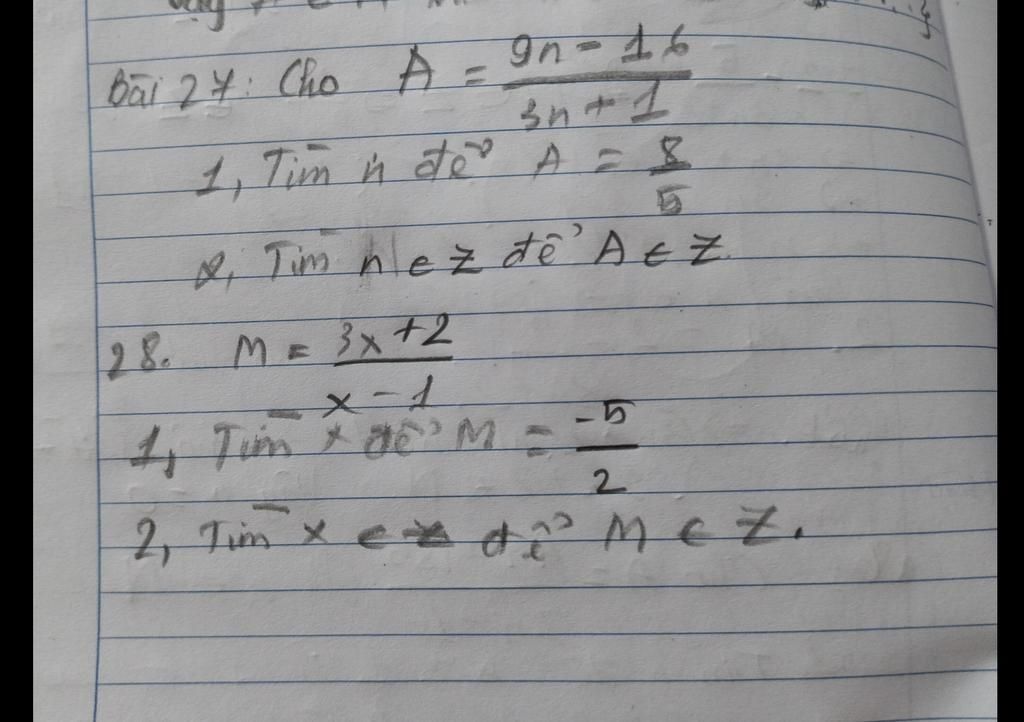 Bài 27: Cho A = \frac{9n - 16}{3n + 1}
1, Tìm n để A = \frac{8}{5}
2, Tìm n ∈ Z để A ∈ Z.
28. M = \frac{3x + 2}{x - 1}
1, Tìm x để M = \frac{-5}{2}
2, Tìm x ∈ Z để M ∈ Z.